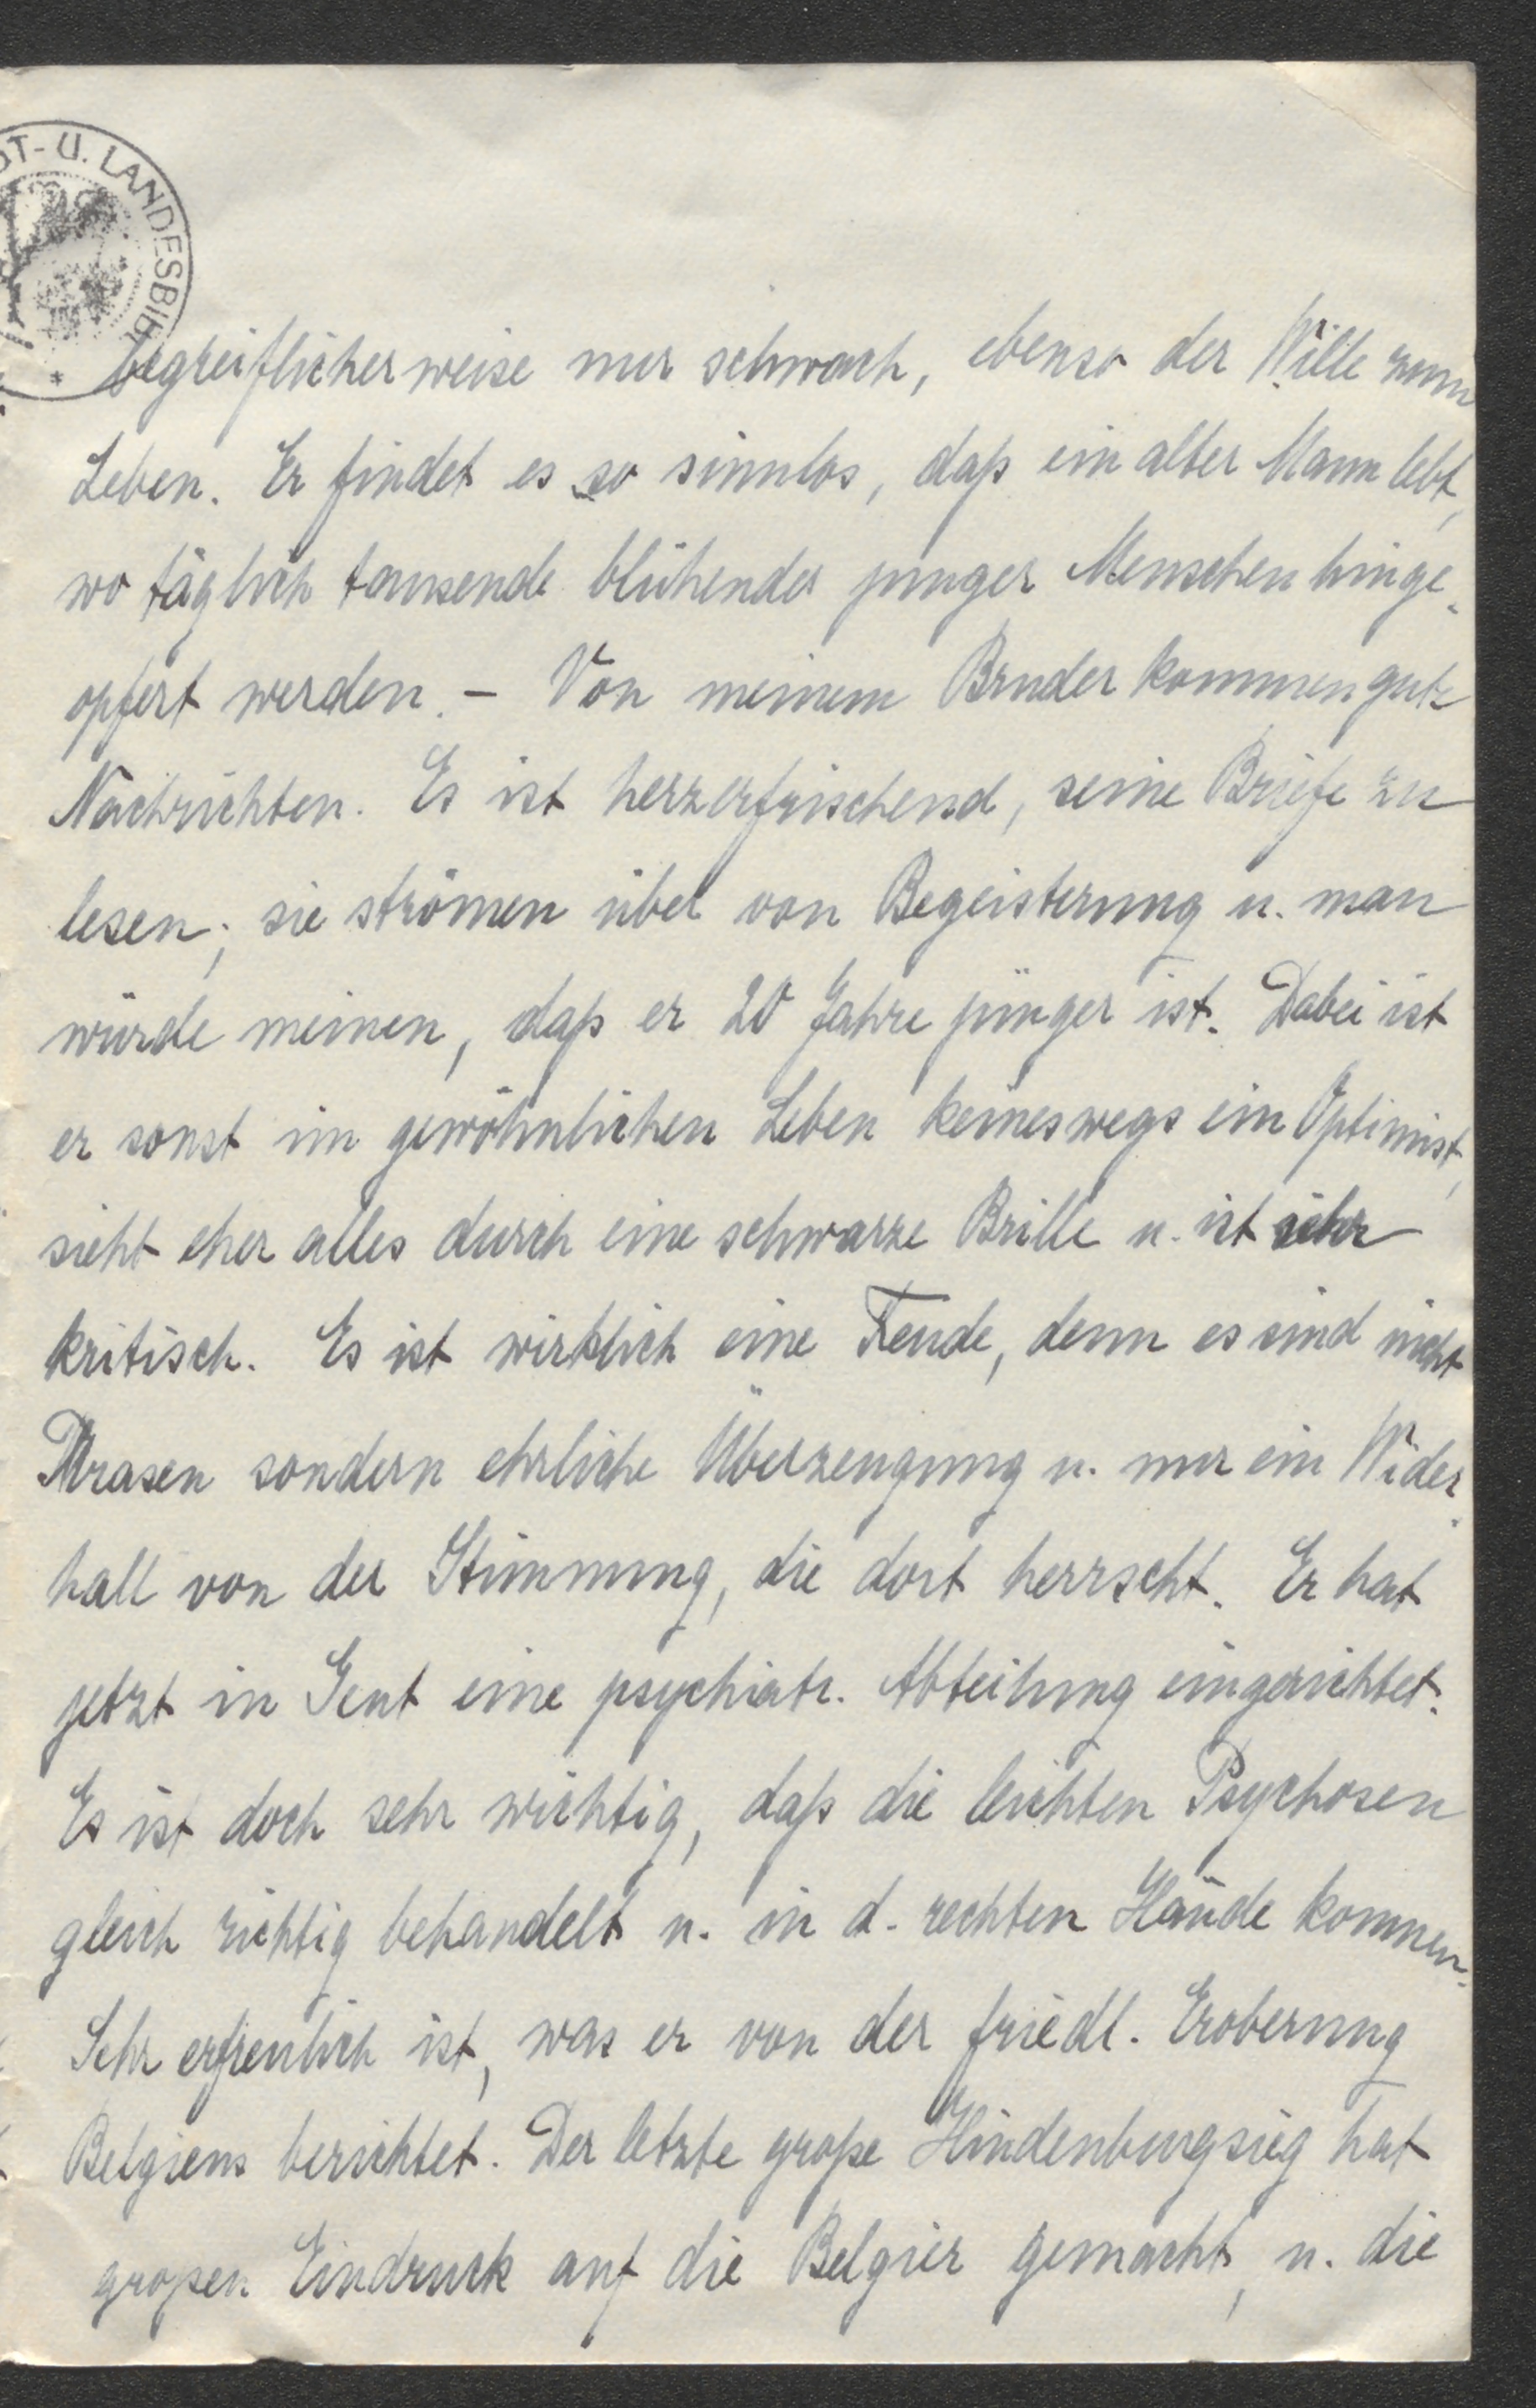 DT- U. LANDESBIBL
*
begreiflicherweise nur schwach, ebenso der Wille zum
Leben. Er findet es so sinnlos, daß ein alter Mann lebt,
wo täglich tausende blühender junger Menschen hinge-
opfert werden. – Von meinem Bruder kommen gute
Nachrichten. Es ist herzerfrischend, seine Briefe zu
lesen; sie strömen über von Begeisterung u. man
würde meinen, daß er 20 Jahre jünger ist. Dabei ist
er sonst im gewöhnlichen Leben keineswegs ein Optimist,
sieht eher alles durch eine schwarze Brille u. ist sehr
kritisch. Es ist wirklich eine Freude, denn es sind nicht
Phrasen sondern ehrliche Überzeugung u. nur ein Wider-
hall von der Stimmung, die dort herrscht. Er hat
jetzt in Gent eine psychiatr. Abteilung eingerichtet.
Es ist doch sehr wichtig, daß die leichten Psychosen
gleich richtig behandelt u. in d. rechten Hände kommen.
Sehr erfreulich ist, was er von der friedl. Eroberung
Belgiens berichtet. Der letzte große Hindenburgsieg hat
großen Eindruck auf die Belgier gemacht, u. die